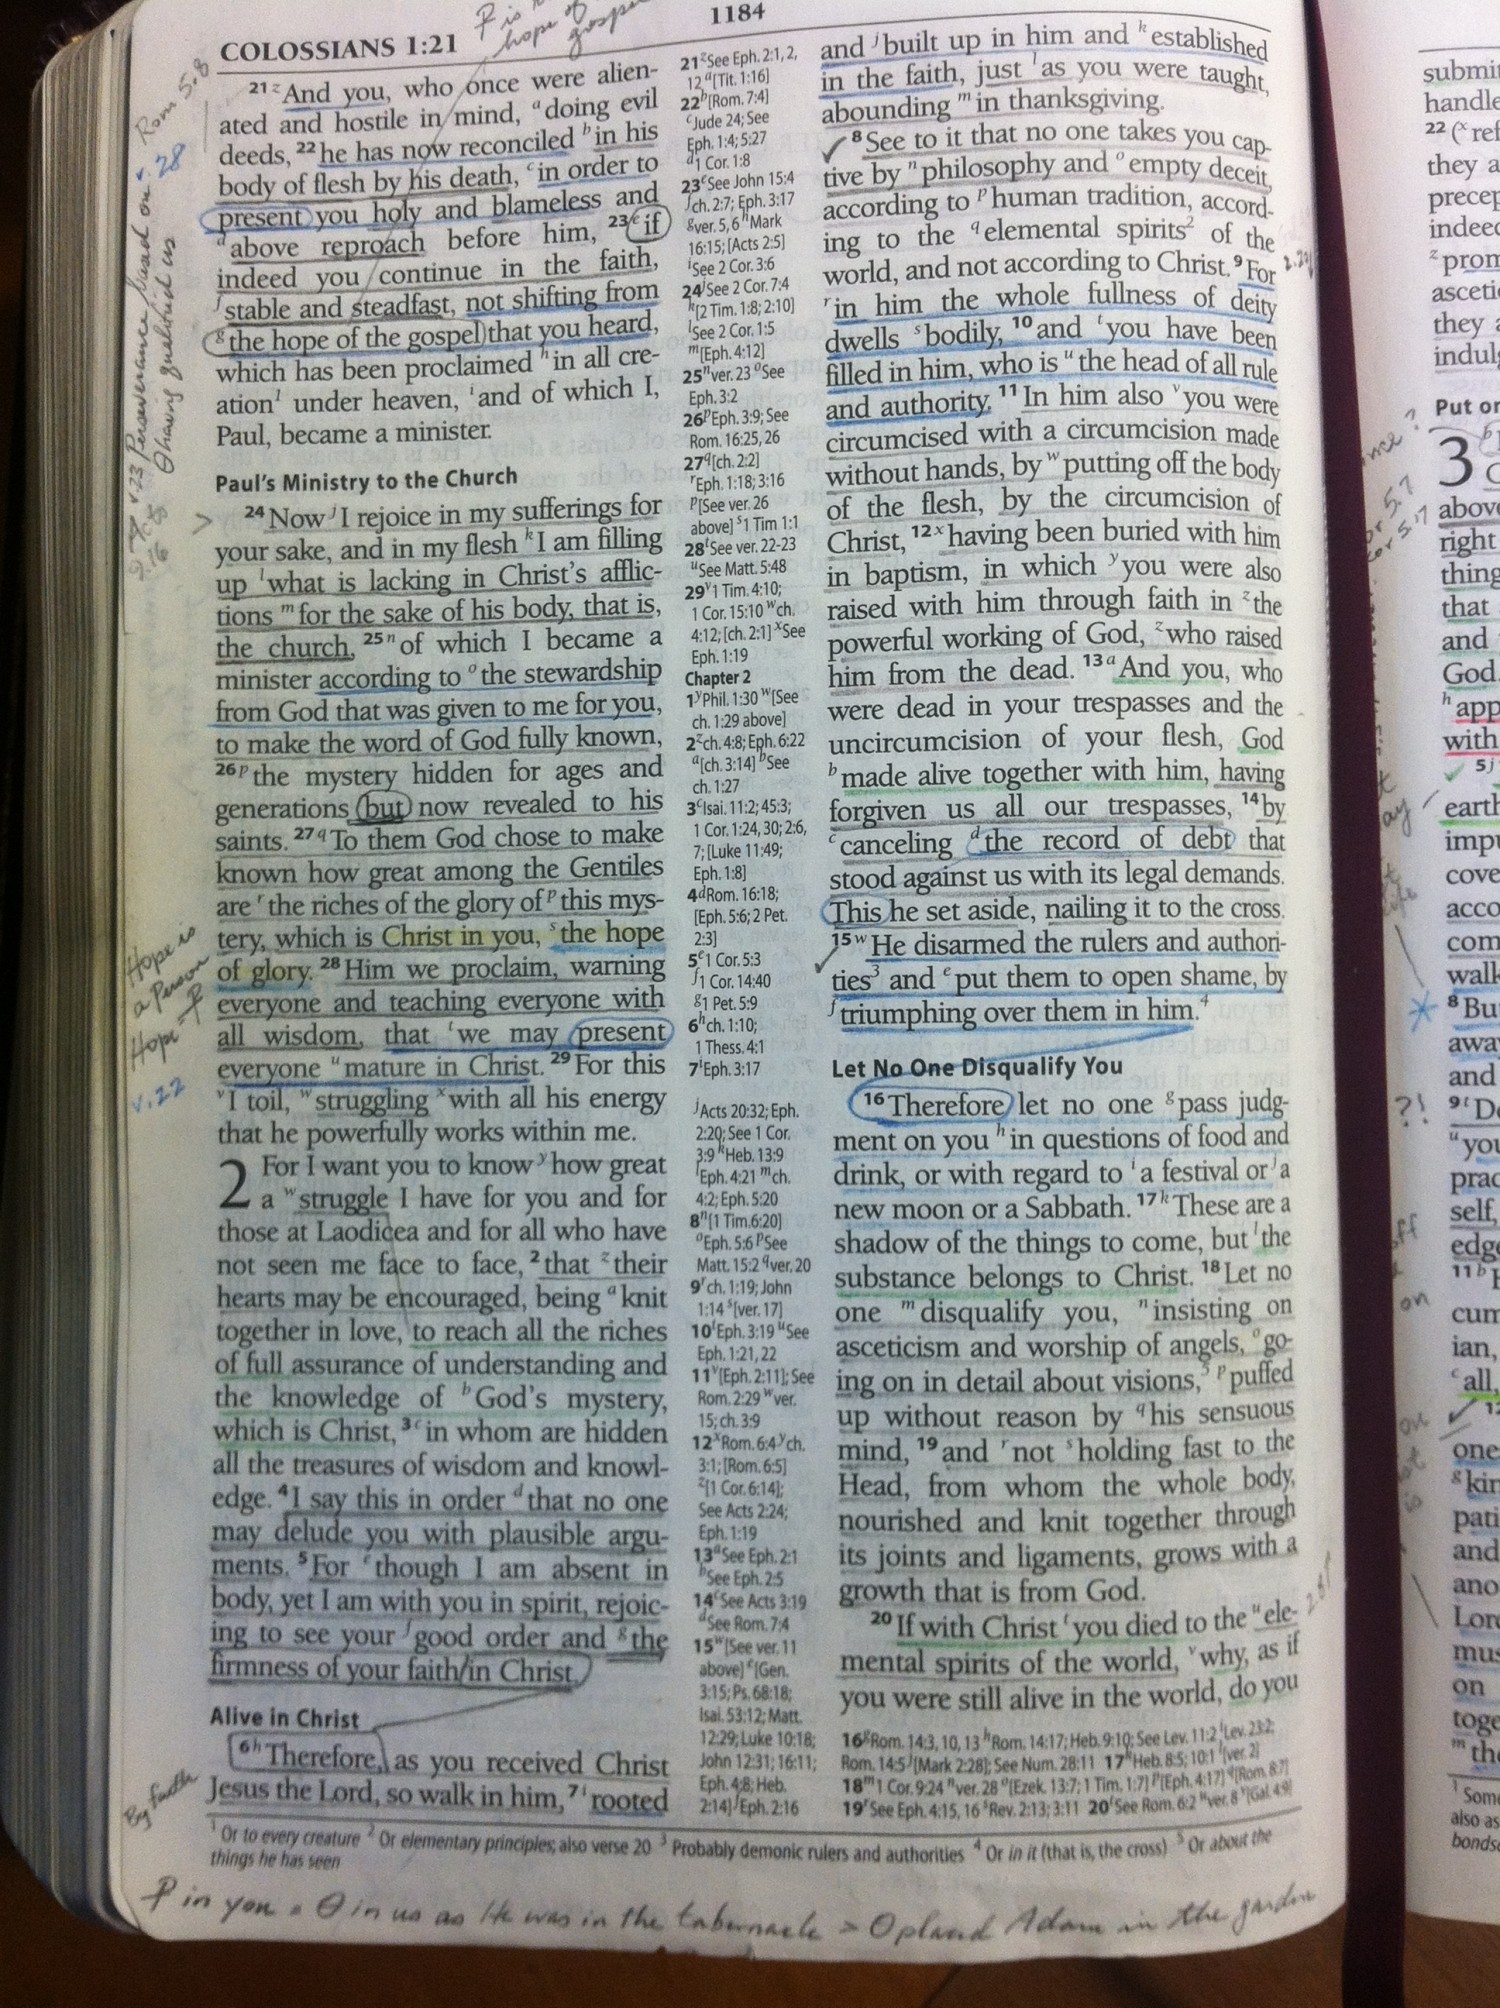 COLOSSIANS 1:21
1184
hope of
Rom 5:8
v. 28
v 23 Perseverance based on
having qualified us
21 z And you, who once were alien-
ated and hostile in mind, a doing evil
deeds, 22 he has now reconciled b in his
body of flesh by his death, c in order to
present you holy and blameless and
d above reproach before him, 23 e if
indeed you continue in the faith,
f stable and steadfast, not shifting from
g the hope of the gospel that you heard,
which has been proclaimed h in all cre-
ation1 under heaven, i and of which I,
Paul, became a minister.
Paul's Ministry to the Church
24 Now j I rejoice in my sufferings for
your sake, and in my flesh k I am filling
up l what is lacking in Christ's afflic-
tions m for the sake of his body, that is,
the church, 25 n of which I became a
minister according to o the stewardship
from God that was given to me for you,
to make the word of God fully known,
26 p the mystery hidden for ages and
generations but now revealed to his
saints. 27 q To them God chose to make
known how great among the Gentiles
are r the riches of the glory of p this mys-
tery, which is Christ in you, s the hope
of glory. 28 Him we proclaim, warning
everyone and teaching everyone with
all wisdom, that t we may present
everyone u mature in Christ. 29 For this
v I toil, w struggling x with all his energy
that he powerfully works within me.
Hope is
a Person
Hope =
v. 22
2 For I want you to know y how great
a w struggle I have for you and for
those at Laodicea and for all who have
not seen me face to face, 2 that z their
hearts may be encouraged, being a knit
together in love, to reach all the riches
of full assurance of understanding and
the knowledge of b God's mystery,
which is Christ, 3 c in whom are hidden
all the treasures of wisdom and knowl-
edge. 4 I say this in order d that no one
may delude you with plausible argu-
ments. 5 For e though I am absent in
body, yet I am with you in spirit, rejoic-
ing to see your f good order and g the
firmness of your faith in Christ.
Alive in Christ
6 h Therefore, as you received Christ
Jesus the Lord, so walk in him, 7 i rooted
By faith
21 z See Eph. 2:1, 2,
12 a [Tit. 1:16]
22 b [Rom. 7:4]
c Jude 24; See
Eph. 1:4; 5:27
d 1 Cor. 1:8
23 e See John 15:4
f ch. 2:7; Eph. 3:17
g ver. 5, 6 h Mark
16:15; [Acts 2:5]
i See 2 Cor. 3:6
24 j See 2 Cor. 7:4
k [2 Tim. 1:8; 2:10]
l See 2 Cor. 1:5
m [Eph. 4:12]
25 n ver. 23 o See
Eph. 3:2
26 p Eph. 3:9; See
Rom. 16:25, 26
27 q [ch. 2:2]
r Eph. 1:18; 3:16
p [See ver. 26
above] s 1 Tim 1:1
28 t See ver. 22-23
u See Matt. 5:48
29 v 1 Tim. 4:10;
1 Cor. 15:10 w ch.
4:12; [ch. 2:1] x See
Eph. 1:19
Chapter 2
1 y Phil. 1:30 w [See
ch. 1:29 above]
2 z ch. 4:8; Eph. 6:22
a [ch. 3:14] b See
ch. 1:27
3 c Isai. 11:2; 45:3;
1 Cor. 1:24, 30; 2:6,
7; [Luke 11:49;
Eph. 1:8]
4 d Rom. 16:18;
[Eph. 5:6; 2 Pet.
2:3]
5 e 1 Cor. 5:3
f 1 Cor. 14:40
g 1 Pet. 5:9
6 h ch. 1:10;
1 Thess. 4:1
7 i Eph. 3:17
j Acts 20:32; Eph.
2:20; See 1 Cor.
3:9 k Heb. 13:9
l Eph. 4:21 m ch.
4:2; Eph. 5:20
8 n [1 Tim. 6:20]
o Eph. 5:6 p See
Matt. 15:2 q ver. 20
9 r ch. 1:19; John
1:14 s [ver. 17]
10 t Eph. 3:19 u See
Eph. 1:21, 22
11 v [Eph. 2:11]; See
Rom. 2:29 w ver.
15; ch. 3:9
12 x Rom. 6:4 y ch.
3:1; [Rom. 6:5]
z [1 Cor. 6:14];
See Acts 2:24;
Eph. 1:19
13 a See Eph. 2:1
b See Eph. 2:5
14 c See Acts 3:19
d See Rom. 7:4
15 w [See ver. 11
above] e [Gen.
3:15; Ps. 68:18;
Isai. 53:12; Matt.
12:29; Luke 10:18;
John 12:31; 16:11;
Eph. 4:8; Heb.
2:14] f Eph. 2:16
and j built up in him and k established
in the faith, just l as you were taught,
abounding m in thanksgiving.
8 See to it that no one takes you cap-
tive by n philosophy and o empty deceit,
according to p human tradition, accord-
ing to the q elemental spirits2 of the
world, and not according to Christ. 9 For
r in him the whole fullness of deity
dwells s bodily, 10 and t you have been
filled in him, who is u the head of all rule
and authority. 11 In him also v you were
circumcised with a circumcision made
without hands, by w putting off the body
of the flesh, by the circumcision of
Christ, 12 x having been buried with him
in baptism, in which y you were also
raised with him through faith in z the
powerful working of God, z who raised
him from the dead. 13 a And you, who
were dead in your trespasses and the
uncircumcision of your flesh, God
b made alive together with him, having
forgiven us all our trespasses, 14 by
c canceling d the record of debt that
stood against us with its legal demands.
This he set aside, nailing it to the cross.
15 w He disarmed the rulers and authori-
ties3 and e put them to open shame, by
f triumphing over them in him.4
Let No One Disqualify You
16 Therefore let no one g pass judg-
ment on you h in questions of food and
drink, or with regard to i a festival or j a
new moon or a Sabbath. 17 k These are a
shadow of the things to come, but l the
substance belongs to Christ. 18 Let no
one m disqualify you, n insisting on
asceticism and worship of angels, o go-
ing on in detail about visions,5 p puffed
up without reason by q his sensuous
mind, 19 and r not s holding fast to the
Head, from whom the whole body,
nourished and knit together through
its joints and ligaments, grows with a
growth that is from God.
20 If with Christ t you died to the u ele-
mental spirits of the world, v why, as if
you were still alive in the world, do you
16 g Rom. 14:3, 10, 13 h Rom. 14:17; Heb. 9:10; See Lev. 11:2 i Lev. 23:2;
Rom. 14:5 j [Mark 2:28]; See Num. 28:11 17 k Heb. 8:5; 10:1 l [ver. 2]
18 m 1 Cor. 9:24 n ver. 28 o [Ezek. 13:7; 1 Tim. 1:7] p [Eph. 4:17] q [Rom. 8:7]
19 r See Eph. 4:15, 16 s Rev. 2:13; 3:11 20 t See Rom. 6:2 u ver. 8 v [Gal. 4:9]
1 Or to every creature 2 Or elementary principles; also verse 20 3 Probably demonic rulers and authorities 4 Or in it (that is, the cross) 5 Or about the
things he has seen
in you = in us as He was in the tabernacle > placed Adam in the garden
submit
handle
22 (x ref
they a
precep
indeed
z prom
asceti
they a
indulg
Put on
3
above
right
thing
that
and
God.
h app
with
5 j
earth
impu
cove
acco
com
walk
8 But
away
and
?!
9 t Do
u you
prac
self,
edge
11 b
cum
ian,
c all,
12
one
g kin
pati
and
ano
Lord
mus
on
toge
m the
1 Some
also as
bonds